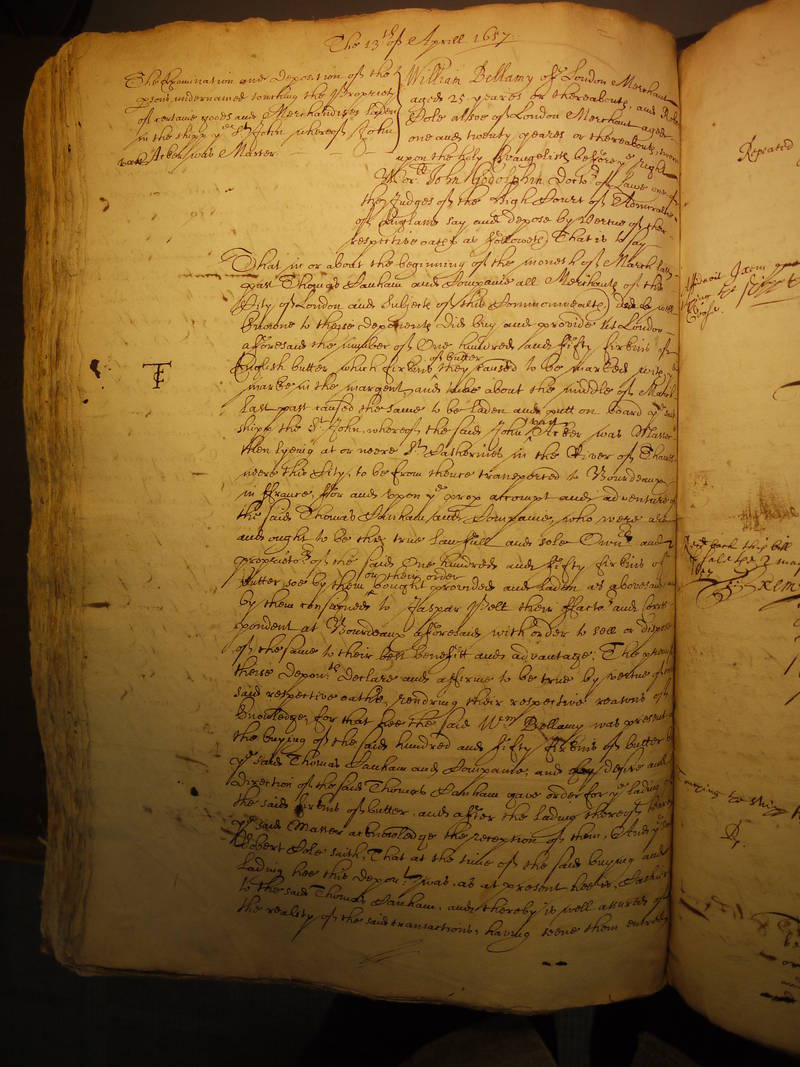 The 13th of Aprill 1657.
The Examination and deposition of the
psons undernamed touching the Propriety
of certaine goods and Merchandizes laden
in the shipp ye St John whereof John
van Acker was Master.
William Bellamy of London Merchant
aged 25 yeares or thereabouts, and Robt
Sole alsoe of London Merchant aged
one and twenty yeares or thereabouts, sworne
upon the holy Evangelists before ye right
Worll John Godolphin Doctor of Lawes one of
the Judges of the High Court of Admiraltie
of England say and depose by vertue of their
respective oathes as followeth That is to say
That in or about the beginning of the moneth of March last
past Thomas Canham and Companie all Merchants of this
City of London and Subjects of this Commonwealth, well
knowne to theise deponents did buy and provide at London
afforesaid the number of One hundred and fifty firkins of
English butter, which firkins of butter they caused to be marked with ye
TC
marke in the margent, and about the middle of March
last past caused the same to be laden and putt on board ye said
shipp the St John, whereof the said John van Acker was Master
then lyeing at or neere St Catherines in the River of Thames
neere this City, to be from thence transported to Bourdeaux
in ffrance, ffor and upon ye prop accompt and adventure of
the said Thomas Canham and Companie, who were and
and ought to be the true lawfull and sole Ownrs and
proprietors of the said One hundred and fifty firkins of
butter soe by them or their order bought provided and laden as abovesaid
by them consigned to Jaspar Velt their ffactor and corre-
spondent at Bourdeaux afforesaid with order to sell or dispose
of the same to their best benefitt and advantage. The premisses
theise deponts declare and affirme to be true by vertue of their
said respective oathes, rendring their respective reasons of
knowledge, for that hee the said Wm Bellamy was present at
the buying of the said hundred and fifty firkins of butter by
ye said Thomas Canham and Companie, and by desire and
direction of the said Thomas Canham gave order for ye lading of
the said firkins of butter, and after the lading thereof heard
ye said Master acknowledge the reception of them. And ye said
Robert Sole saith, That at the time of the said buying and
lading hee this depont was, as at present hee is, Cashier
to the said Thomas Canham, and thereby is well assured of
the reality of the said transactions, having seene them entred
Repeated